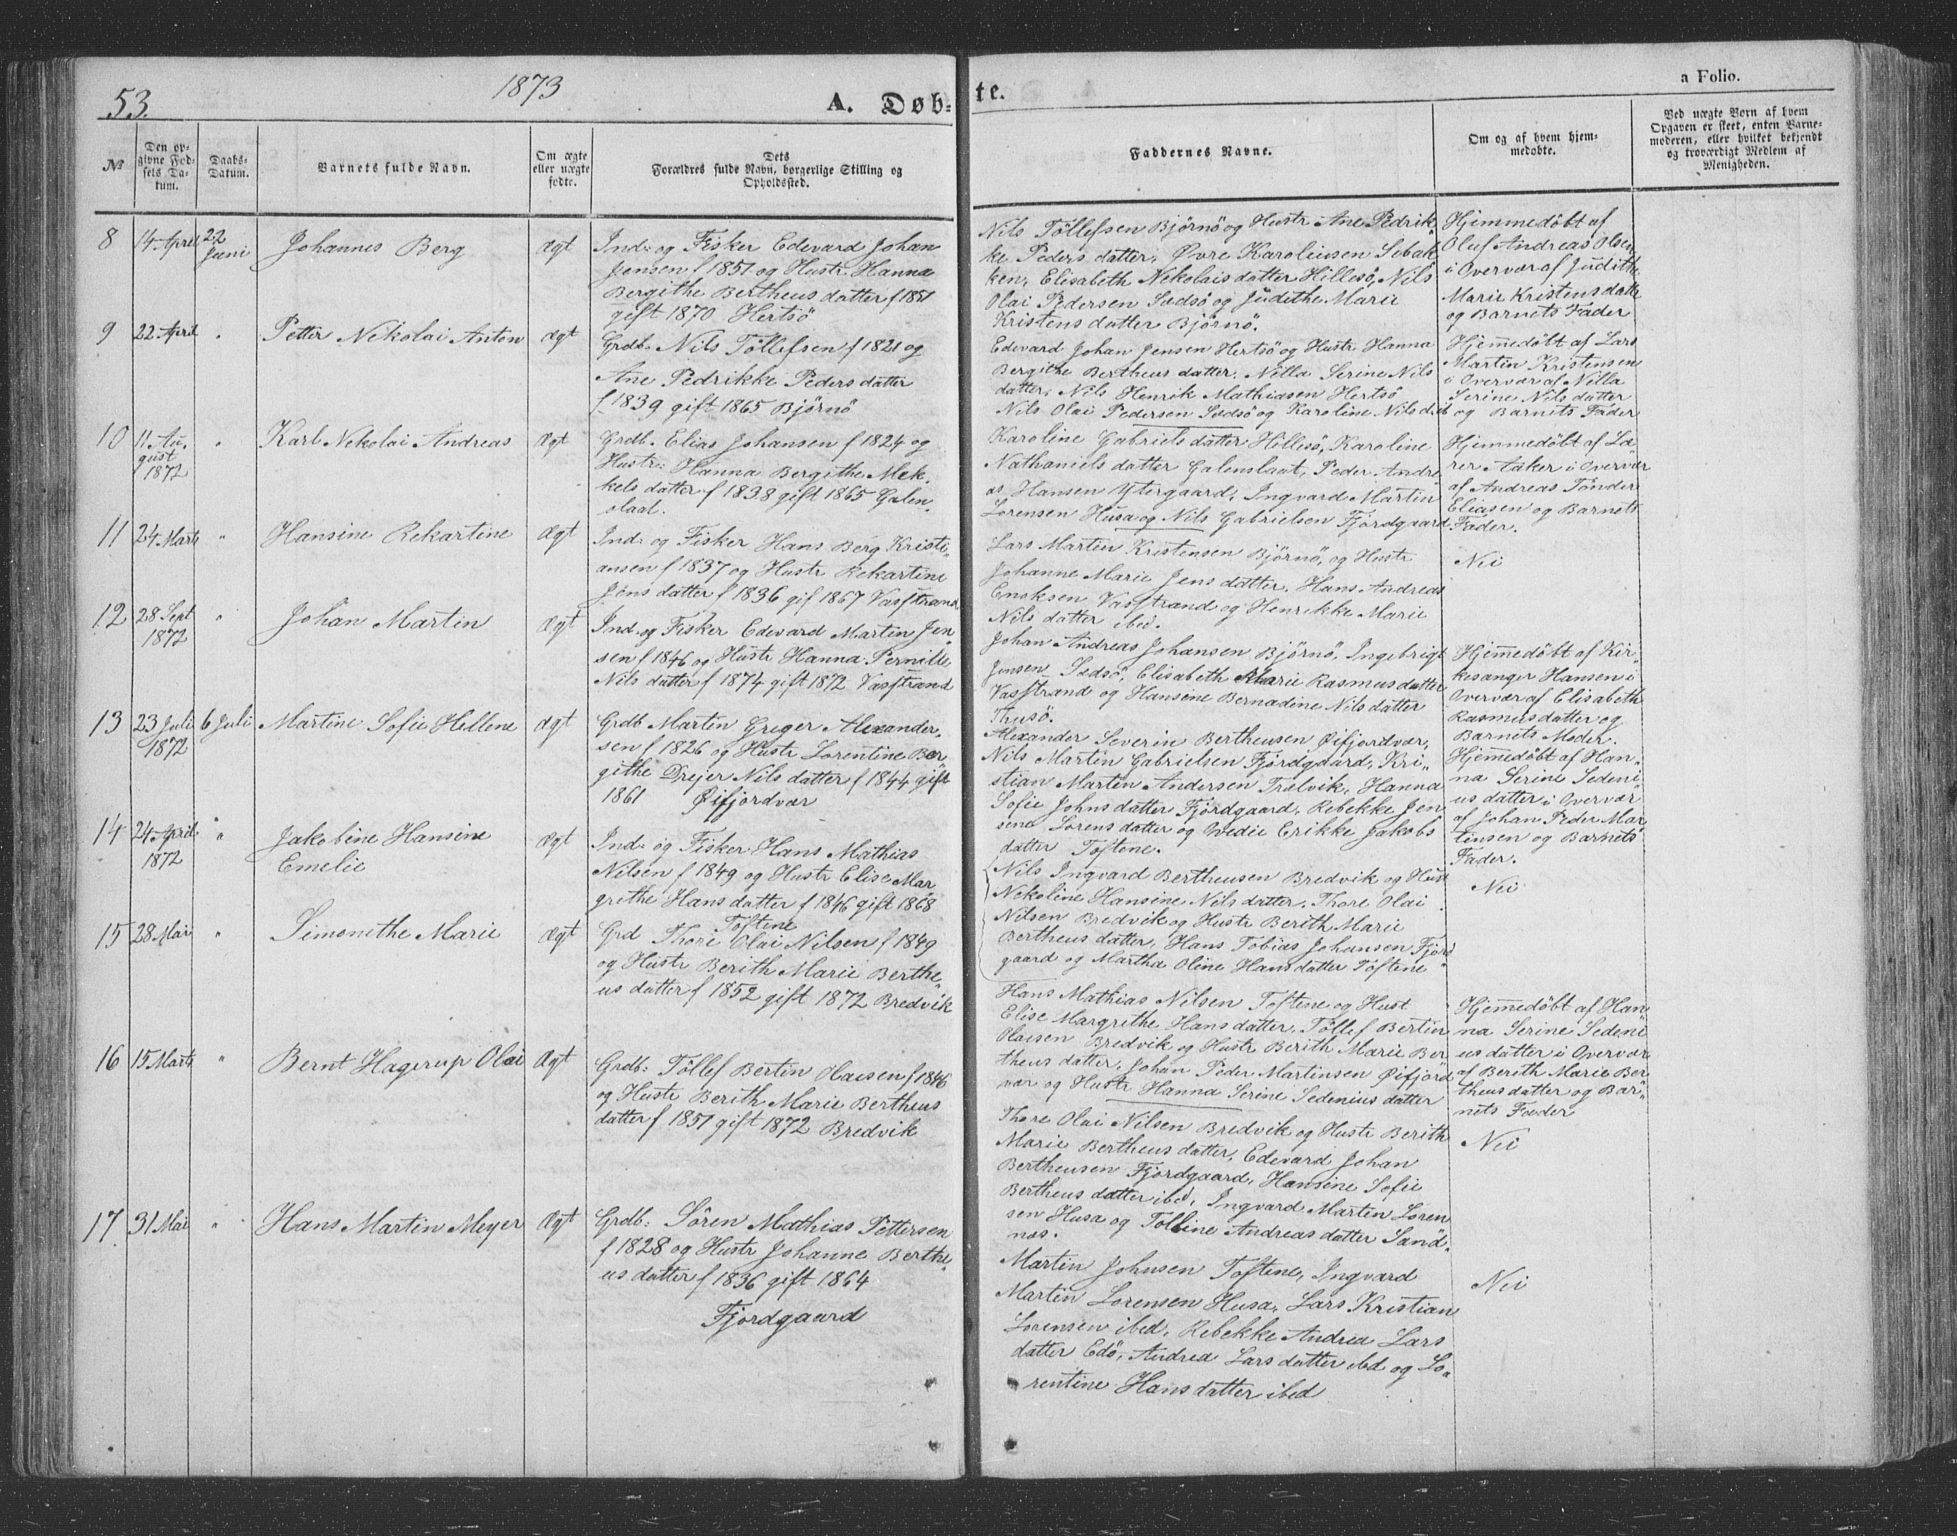 53.
1873
A. Døb-
te.
a Folio.
№
Den op-
givne Fød-
sels Da-
tum.
Daabs-
Datum.
Barnets fulde Navn.
Om ægte
eller uægte
fødte.
Dets
Forældres fulde Navn, borgerlige Stilling og
Opholdssted.
Faddernes Navne.
Om og af hvem hjem-
medøbte.
Ved uægte Børn af hvem
Opgaven er skeet, enten Barne-
moderen, eller hvilket bekjendt
og troværdigt Medlem af
Menigheden.
8
14 April
22
Juni
Johannes Berg
ægt
Ind: og Fisker Edevard Johan
Jensen f 1851 og Hustr Hanna
Bergithe Bertheus datter f 1851
gift 1870 Hertsö
Nils Töllefsen Björnö og Hustr Ane Pedrik
ke Peders datter, Övre Karoliusen Sebak
ken, Elisabeth Nekolais datter Hillesö, Nils
Olai Pedersen Sødsö og Judithe Marie
Kristens datter Björnö.
Hjemmedöbt af
Oluf Andreas Olsen
i Overvær af Judithe
Marie Kristens datter
og Barnets Fader
9
22 April
"
Petter Nekolai Anton
ægt
Grdb. Nils Töllefsen f 1821 og
Ane Pedrikke Peders datter
f 1839 gift 1865 Björnö
Edevard Johan Jensen Hertsö og Hustr Hanna
Bergithe Bertheus datter, Nilla Serine Nils
datter, Nils Henrik Mathiasen Hertsö
Nils Olai Pedersen Sødsö og Karoline Nilsd ib
Hjemedöbt af Lars
Martin Kristensen
i Overvær af Nilla
Serine Nils datter
og Barnets Fader
10
11 Au-
gust
1872
"
Karl Nekolai Andreas
Ægt
Grdb. Elias Johansen f 1824 og
Hustr: Hanna Bergithe Mek-
kels datter f 1838 gift 1865 Galen-
slaat.
Karoline Gabriels datter Hillesö, Karoline
Nathaniels datter Galenslaat, Peder Andre
as Hansen Ytergaard, Ingvard Martin
Lorensen Husa og Nils Gabrielsen Fjordgaard.
Hjemmedöbt af Læ-
rer Aaker i Overvær
af Andreas Tönder
Eliasen og Barnets
Fader.
11
24 Marts
"
Hansine Rekartine
Ægt
Ind: og Fisker Hans Berg Kristi-
ansen f 1837 og Hustr Rekartine
Jens datter f 1836 gif 1867 Vasstrand
Lars Martin Kristensen Björnö, og Hustr
Johanne Marie Jens datter, Hans Andreas
Enoksen Vasstrand og Henrikke Marie
Nils datter ibid.
Nei
12
28 Sept
1872
"
Johan Martin
Ægt
Ind. og Fisker Edevard Martin Jen-
sen f 1846 og Hustr Hanna Pernille
Nils datter f 1874 gift 1872 Vasstrand
Johan Andreas Johansen Björnö, Ingebrigt
Jensen Sødsö, Elisabeth Marie Rasmus datter
Vasstrand og Hansene Bernadine Nils datter
Thusö.
Hjemedöbt af Kir-
kesanger Hansen i
Overvær af Elisabeth
Rasmus datter og
Barnets Moder.
13
23 Juli
1872
6 Juli
Martine Sofie Hellene
ægt
Grdb Martin Greger Alexander-
sen f 1826 og Hustr Lorentine Ber
githe Dreier Nils datter f 1844 gift
1861 Öifjordvær
Alexander Severin Bertheusen Öifjordvær,
Nils Martin Gabrielsen Fjordgaard, Kri-
stian Martin Andersen Trælvik, Hanna
Sofie Johns datter Fjordgaard, Rebekke Jen
sine Lorens datter og Ovedie Erikke Jakobs
datter Toftene.
Hjemedöbt af Han-
na Serine Sedeni-
us datter i Overvær
af Johan Peder Mar
tinsen og Barnets
Fader.
14
24 April
1872
"
Jakobine Hansine
Emelie
ægt
Ind: og Fisker Hans Mathias
Nilsen f 1849 og Hustr Elise Mar
grethe Hans datter f 1846 gift 1868
Toftene
Nils Ingvard Bertheusen Bredvik og Hust
Nekoline Hansine Nils datter, Thore Olai
Nilsen Bredvik og Hustr Berith Marie
Bertheus datter, Hans Tobias Johansen Fjord
gaard og Martha Oline Hans datter Toftene
Nei
15
28 Mai
"
Simonethe Marie
ægt
Grd Thore Olai Nilsen f 1849
og Hustr Berith Marie Berthe-
us datter f 1852 gift 1872 Bredvik
Hans Mathias Nilsen Toftene og Hust
Elise Margrithe Hans datter, Töllef Bertin
Olaisen Bredvik og Hustr Berith Marie Ber
theus datter, Johan Peder Martinsen Öifjord
vær og Hustr Hanna Serine Sedenius datter
Hjemedöbt af Han-
na Serine Sedeni
us datter i Overvær
af Berith Marie Ber
theus datter og Bar-
nets Fader
16
15 Marts
"
Bernt Hagerup Olai
Ægt
Grdb: Töllef Bertin Olaisen f 1846
og Hustr Berith Marie Bertheus
datter f 1851 gift 1872 Bredvik
Thore Olai Nilsen Bredvik og Hustr Berith
Marie Bertheus datter, Edevard Johan
Bertheusen Fjordgaard, Hansine Sofie
Bertheus datter ibed, Ingvard Martin Loren
sen Husa og Tolline Andreas datter Sand-
nes.
Nei
17.
31 Mai
"
Hans Martin Meyer
Ægt
Grdb: Sören Mathias Pettersen
f 1828 og Hustr Johanne Berthe-
us datter f 1836 gift 1864
Fjordgaard
Martin Johnsen Toftene, Ingvard
Martin Lorensen Husa, Lars Kristian
Lorensen ibed, Rebekke Andrea Lars
datter Edö, Andrea Lars datter ibd og Lo-
rentine Hans datter ibed
Nei